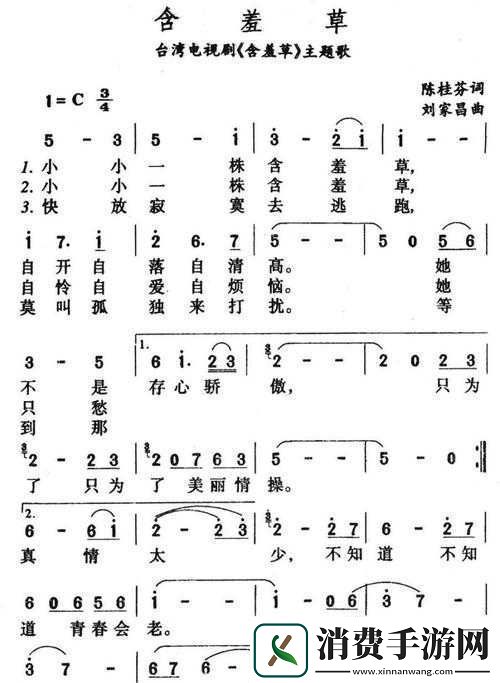 含羞草
台湾电视剧《含羞草》主题歌
1=C 3/4
陈桂芬词
刘家昌曲
5 - 3 | 5 - i | 3 - 2 i | i - - |
1. 小 小 一 株 含 羞 草,
2. 小 小 一 株 含 羞 草,
3. 快 放 寂 寞 去 逃 跑,
i 7. i | 2 6. 7 | 5 - - | 5 0 5 6 |
自 开 自 落 自 清 高。 她
自 怜 自 爱 自 烦 恼。 她
莫 叫 孤 独 来 打 扰。 等
1.
3 - 5 | 6 i. 2 3 | 2 - - | 2 0 2 3 |
不 是 存 心 骄 傲, 只 为
只 愁
到 那
2 - 2 3 | 2 0 7 6 3 | 5 - - | 5 - 0 :||
了 只 为 了 美 丽 情 操。
2.
6 - 6 i | 2 - 2 3 | 2 - 2 7 | 6 - 2 7 |
真 情 太 少, 不 知 道 不 知
6 0 6 5 6 | i - - | i - i
道 青 春 会 老。
3 - 7 | 6 - 6 7 6 7
消费手游网
www.xinnanwang.com